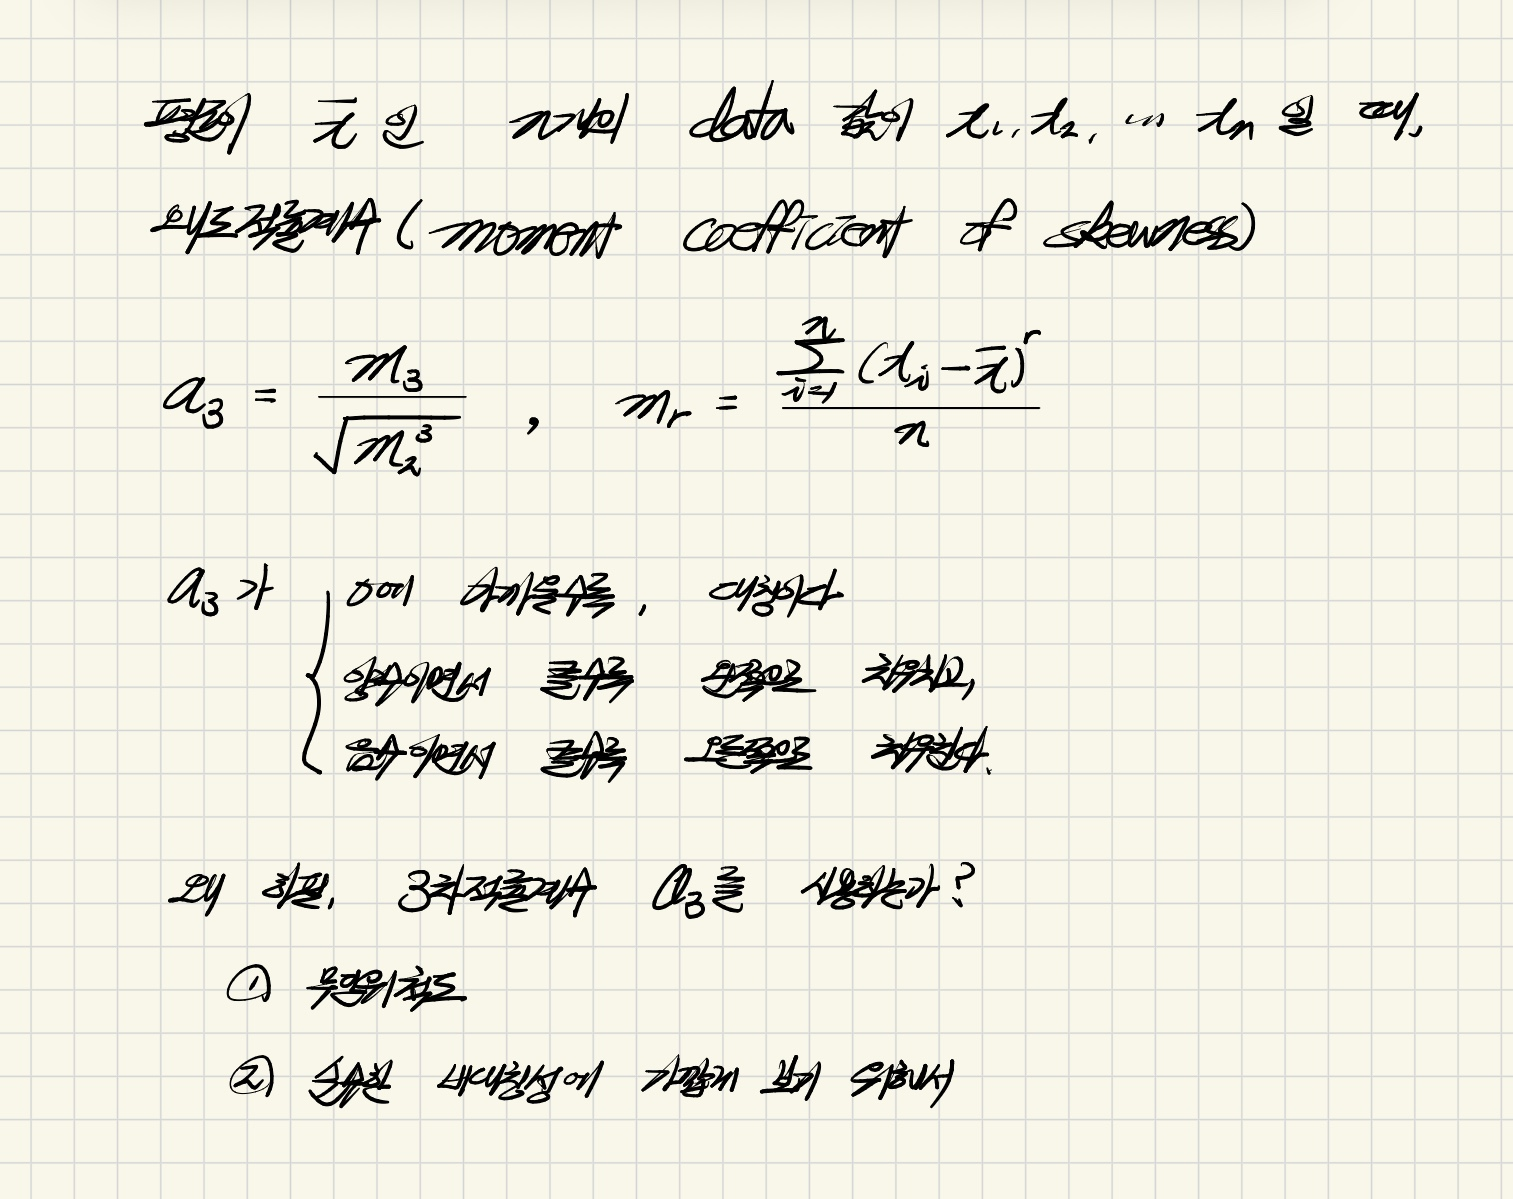 평균이 x̄ 인 n개의 data 값이 x₁, x₂, ... xₙ 일 때,
왜도적률계수 (moment coefficient of skewness)
a₃ = m₃ / √(m₂³) , mᵣ = Σᵢ₌₁ⁿ (xᵢ - x̄)ʳ / n
a₃가 { 0에 가까울수록, 대칭이다
양수이면서 클수록 왼쪽으로 치우치고,
음수이면서 클수록 오른쪽으로 치우친다.
왜 하필, 3차적률계수 a₃를 사용하는가?
① 무단위척도
② 순수한 비대칭성에 가깝게 보기 위해서